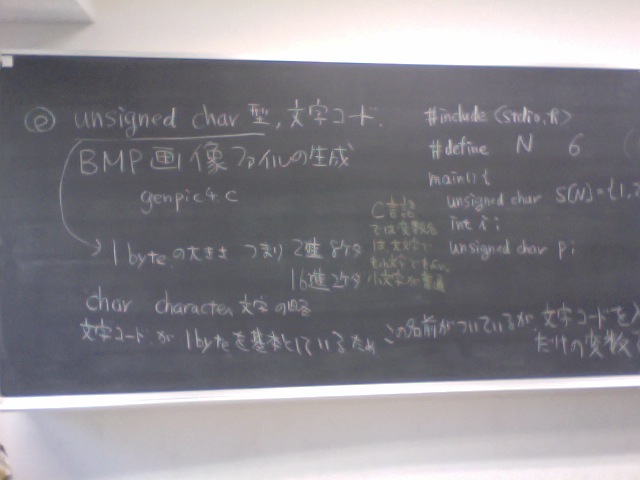 ② unsigned char 型, 文字コード.
BMP 画像ファイルの生成
genpic4.c
1 byte の大きさ つまり 2進 8ケタ
16進 2ケタ
char character 文字の略
文字コードが 1byteを基本としているため この名前がついているが, 文字コードを入
だけの変数で
C言語
では変数名
は大文字で
も小文字でもよい
小文字が普通
#include <stdio.h>
#define N 6
main() {
unsigned char S[N] = {1,
int i;
unsigned char p;